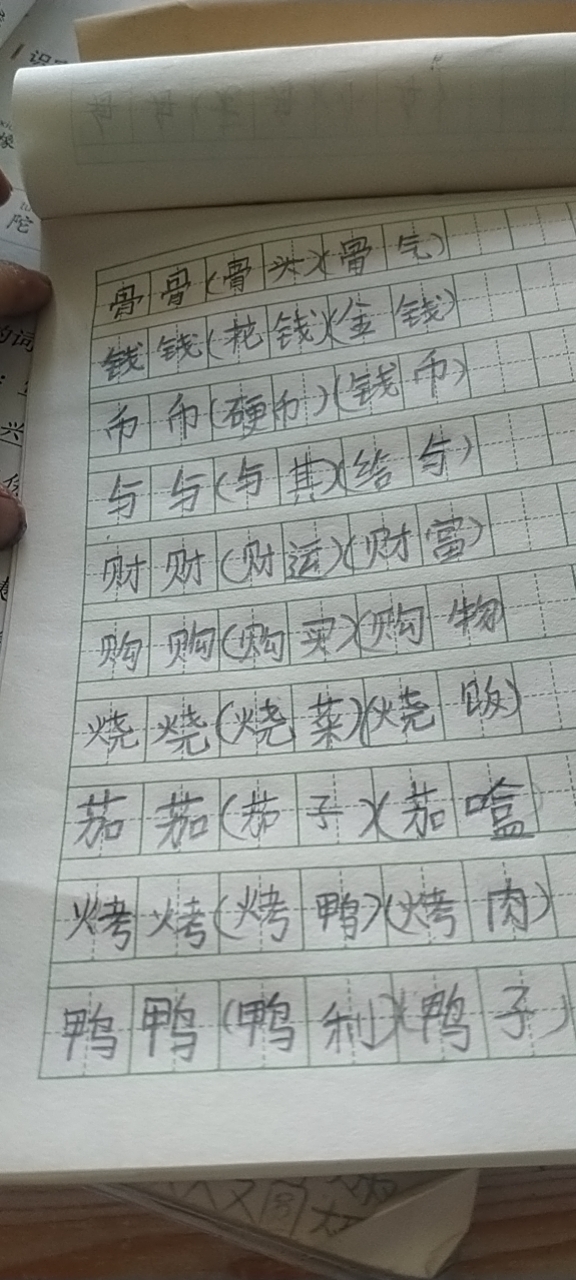 骨骨(骨头)(骨气)
钱钱(花钱)(金钱)
币币(硬币)(钱币)
与与(与其)(给与)
财财(财运)(财富)
购购(购买)(购物
烧烧(烧菜)(烧饭)
茄茄(茄子)(茄盒)
烤烤(烤鸭)(烤肉)
鸭鸭(鸭利)(鸭子)